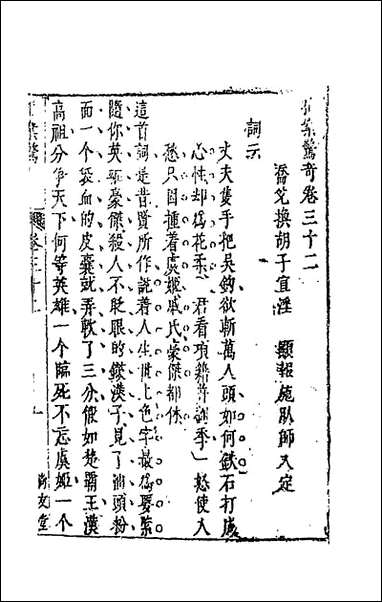 拍案驚奇卷三十二
喬兌換胡子宣淫　顯報施臥師入定
詞云
丈夫隻手把吳鈎欲斬萬人頭如何鉄石打成
心性却爲花柔　君看項籍并劉季一怒使人
愁只因撞着虞姬戚氏豪傑都休
這首詞是昔賢所作說着人生世上色字最爲要緊
隨你英雄豪傑殺人不眨眼的鉄漢子見了油頭粉
面一个袋血的皮囊就弄軟了三分假如楚霸王漢
高祖分爭天下何等英雄一个臨死不忘虞姬一个
卷三十二
一
尚友堂